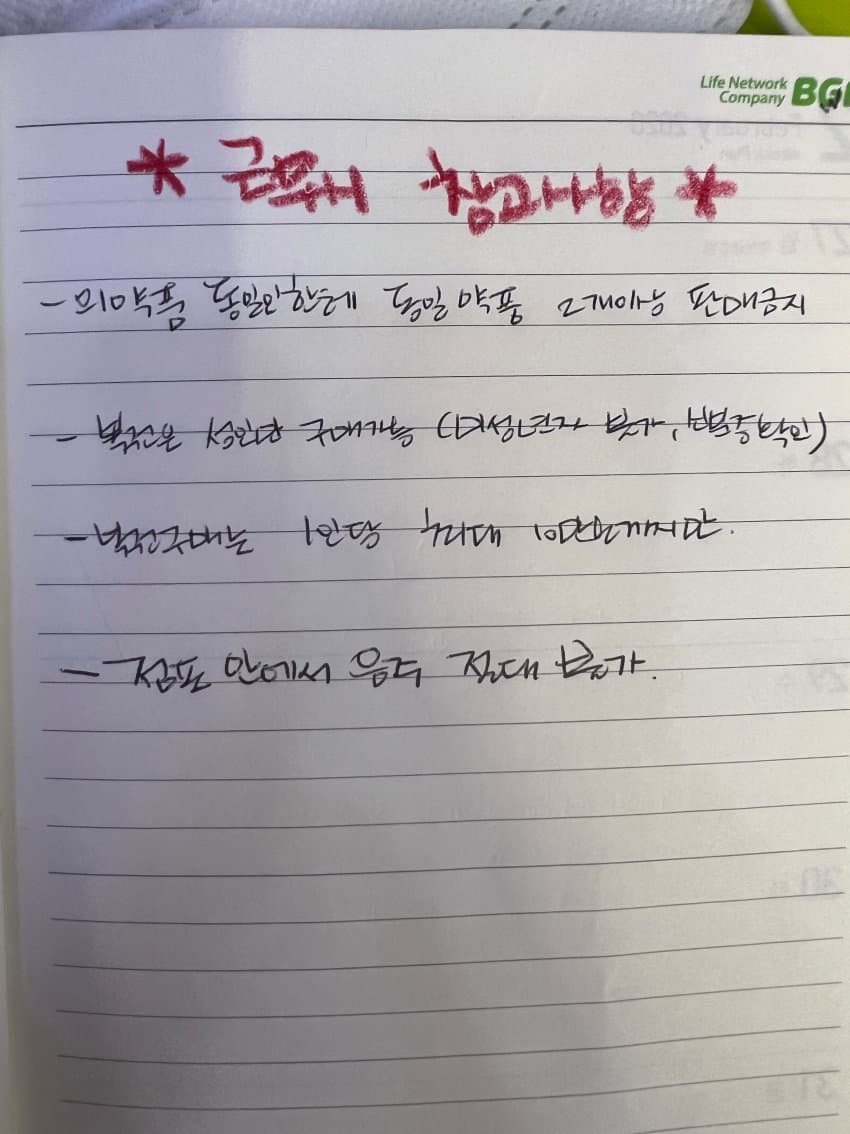 Life Network
Company BG
* 근무시 참고사항 *
- 의약품 동일인한테 동일약품 2개이상 판매금지
- 복권은 성인만 구매가능 (미성년자 불가, 신분증확인)
- 복권구매는 1인당 최대 10만원까지만.
- 점포 안에서 음주 절대 불가.